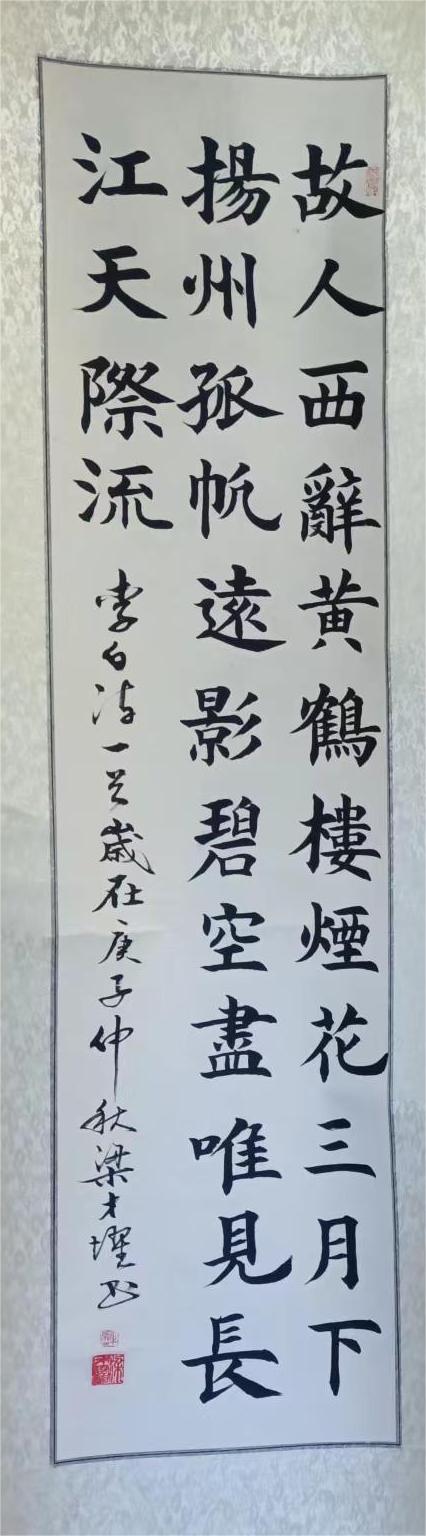 故人西辭黄鶴樓煙花三月下
揚州孤帆遠影碧空盡唯見長
江天際流
李白诗一首歲在庚子仲秋梁才堦书